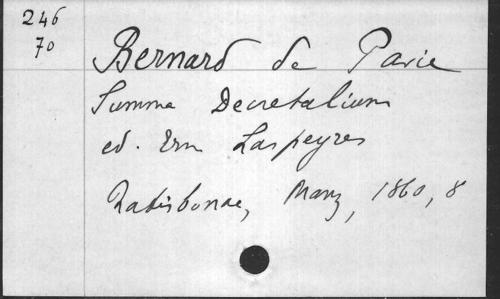 246
70
Bernard de Pavie
Summa Decretalium
ed. Ern Laspeyres
Ratisbonae, Manz, 1860, 8